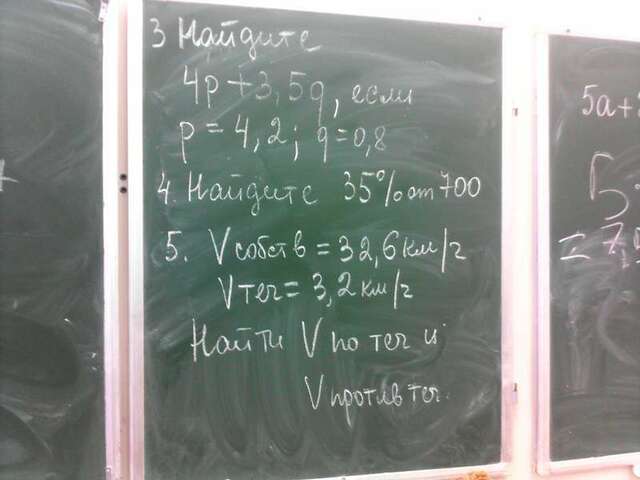 3 Найдите
4p + 3,5q, если
p = 4,2; q = 0,8
4. Найдите 35% от 700
5. V собств = 32,6 км/г
V теч = 3,2 км/г
Найти V по теч и
V против теч.
5a +